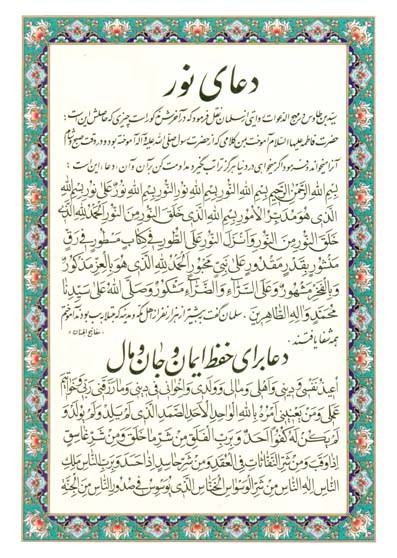 دعای نور
سید بن طاوس در مهج الدعوات روایتی از سلمان نقل فرموده که در آخرش مذکور است چیزی که حاصلش این است:
حضرت فاطمه علیها السلام آموخت بمن کلامی که از حضرت رسول صلی الله علیه و آله آموخته بود و در وقت صبح و شام
آنرا میخواند فرمود اگر میخواهی در دنیا هرگز ترا تب نگیرد مداومت کن بر آن و آن دعا، این است:
بِسْمِ اللهِ الرَّحْمنِ الرَّحیمِ بِسْمِ اللهِ النُّورِ بِسْمِ اللهِ نُورِ النُّورِ بِسْمِ اللهِ نُورٌ عَلی نُورٍ بِسْمِ اللهِ
الَّذی هُوَ مُدَبِّرُ الْاُمُورِ بِسْمِ اللهِ الَّذی خَلَقَ النُّورَ مِنَ النُّورِ اَلْحَمْدُ لِلّهِ الَّذی
خَلَقَ النُّورَ مِنَ النُّورِ وَ اَنْزَلَ النُّورَ عَلَی الطُّورِ فی کِتابٍ مَسْطُورٍ فی رَقٍّ
مَنْشُورٍ بِقَدَرٍ مَقْدُورٍ عَلی نَبِیٍّ مَحْبُورٍ اَلْحَمْدُ لِلّهِ الَّذی هُوَ بِالْعِزِّ مَذْکُورٌ
وَ بِالْفَخْرِ مَشْهُورٌ وَ عَلَی السَّرّاءِ وَ الضَّرّاءِ مَشْکُورٌ وَ صَلَّی اللهُ عَلی سَیِّدِنا
مُحَمَّدٍ وَ آلِهِ الطّاهِرینَ. سلمان گفت بیشتر از هزار نفر از اهل مکه و مدینه که مبتلا بتب بودند آموختم
همه شفا یافتند. مفاتیح الجنان
دعا برای حفظ ایمان و جان و مال
اُعیذُ نَفْسی وَ دینی وَ اَهْلی وَ مالی وَ وَلَدی وَ اِخْوانی فی دینی وَ ما رَزَقَنی رَبّی وَ خَواتیمَ
عَمَلی وَ مَنْ یَعْنینی اَمْرُهُ بِاللهِ الْواحِدِ الْاَحَدِ الصَّمَدِ الَّذی لَمْ یَلِدْ وَ لَمْ یُولَدْ وَ
لَمْ یَکُنْ لَهُ کُفُواً اَحَدٌ وَ بِرَبِّ الْفَلَقِ مِنْ شَرِّ ما خَلَقَ وَ مِنْ شَرِّ غاسِقٍ
اِذا وَقَبَ وَ مِنْ شَرِّ النَّفّاثاتِ فِی الْعُقَدِ وَ مِنْ شَرِّ حاسِدٍ اِذا حَسَدَ وَ بِرَبِّ النّاسِ مَلِکِ
النّاسِ اِلهِ النّاسِ مِنْ شَرِّ الْوَسْواسِ الْخَنّاسِ الَّذی یُوَسْوِسُ فی صُدُورِ النّاسِ مِنَ الْجِنَّةِ